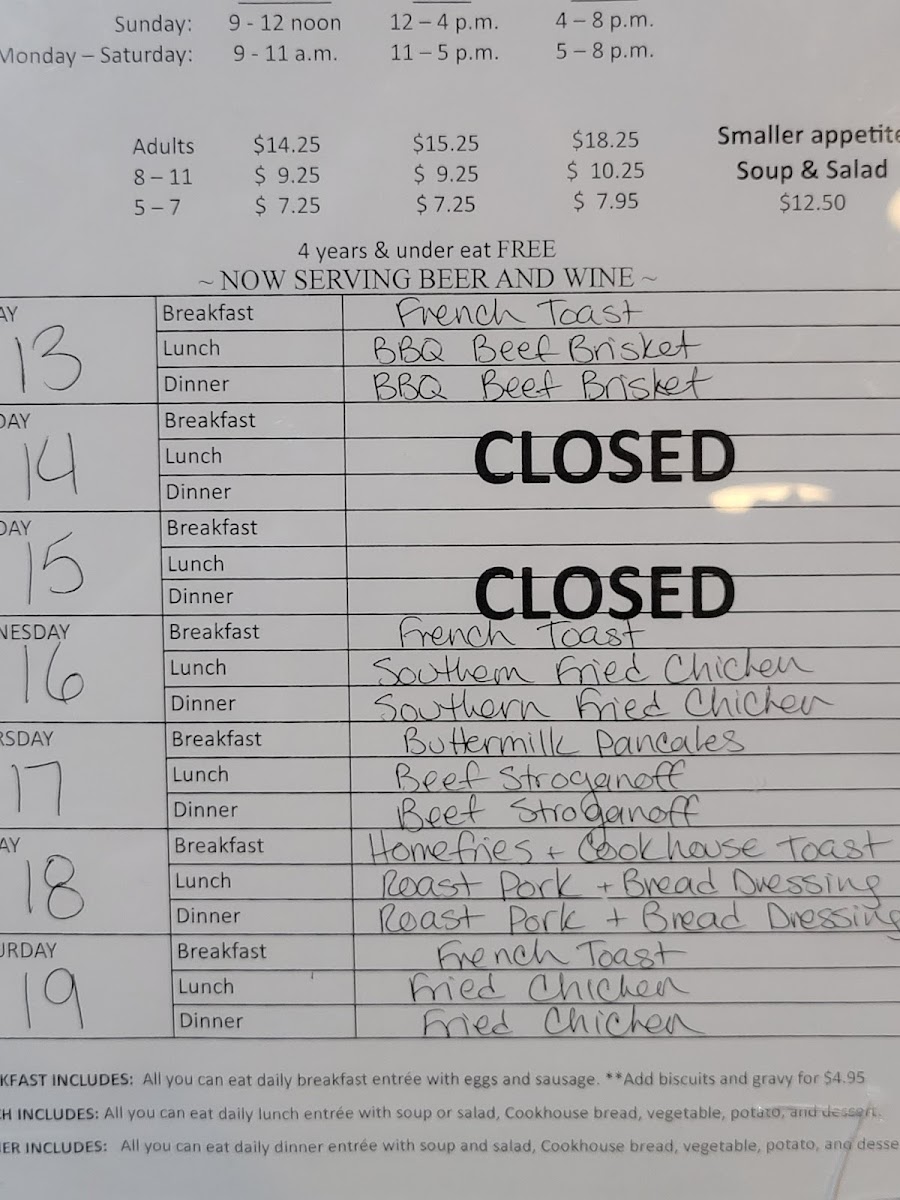 Sunday: 9 - 12 noon 12 – 4 p.m. 4 – 8 p.m.
Monday – Saturday: 9 - 11 a.m. 11 – 5 p.m. 5 – 8 p.m.
Adults $14.25 $15.25 $18.25 Smaller appetite
8 – 11 $ 9.25 $ 9.25 $ 10.25 Soup & Salad
5 – 7 $ 7.25 $ 7.25 $ 7.95 $12.50
4 years & under eat FREE
~ NOW SERVING BEER AND WINE ~
AY Breakfast French Toast
13 Lunch BBQ Beef Brisket
Dinner BBQ Beef Brisket
DAY Breakfast
14 Lunch CLOSED
Dinner
DAY Breakfast
15 Lunch
Dinner CLOSED
NESDAY Breakfast French Toast
16 Lunch Southern Fried Chicken
Dinner Southern Fried Chicken
RSDAY Breakfast Buttermilk Pancakes
17 Lunch Beef Stroganoff
Dinner Beef Stroganoff
AY Breakfast Homefries + Cookhouse Toast
18 Lunch Roast Pork + Bread Dressing
Dinner Roast Pork + Bread Dressing
URDAY Breakfast French Toast
19 Lunch Fried Chicken
Dinner Fried Chicken
KFAST INCLUDES: All you can eat daily breakfast entrée with eggs and sausage. **Add biscuits and gravy for $4.95
CH INCLUDES: All you can eat daily lunch entrée with soup or salad, Cookhouse bread, vegetable, potato, and dessert.
ER INCLUDES: All you can eat daily dinner entrée with soup and salad, Cookhouse bread, vegetable, potato, and desse